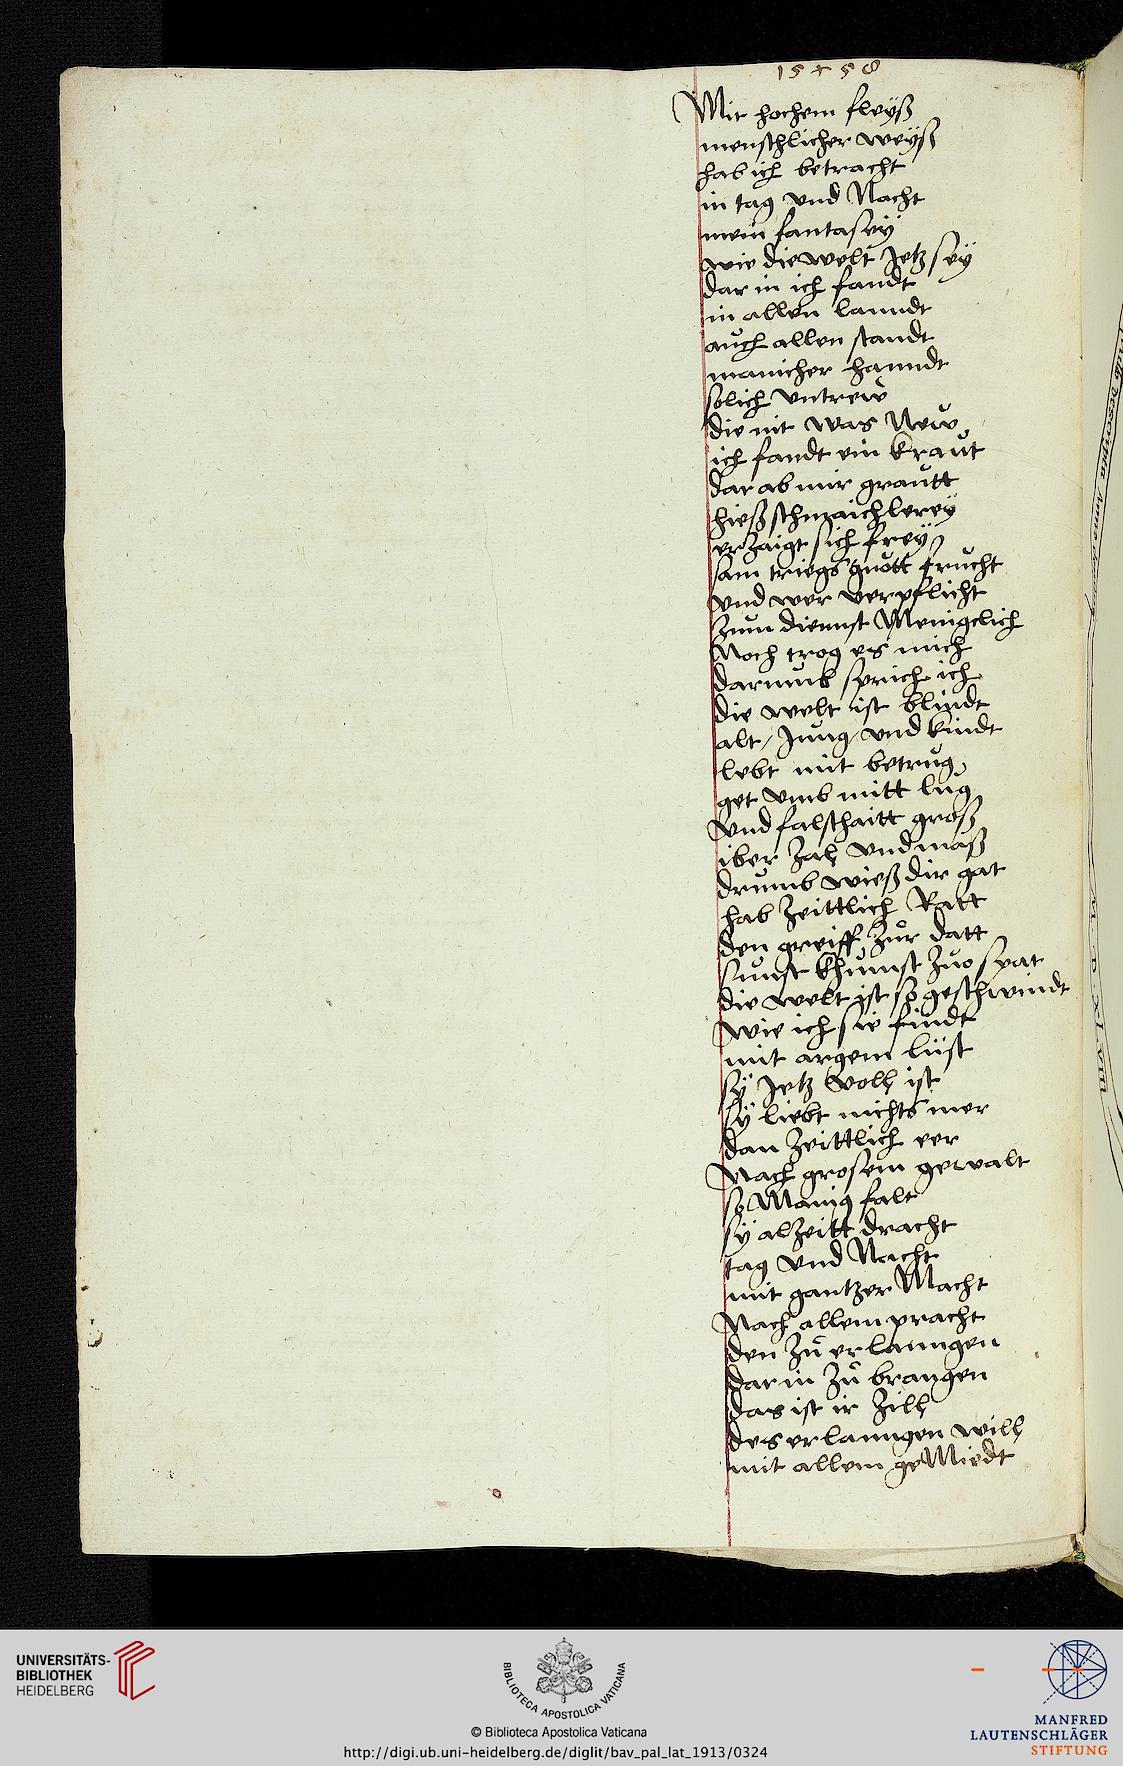 15+58
Mit hochem fleyß
menschlicher weÿß
hab ich betracht
in tag vnd Nacht
mein fantaseÿ
wie die welt Jetz seÿ
dar in ich fandt
in allen lanndt
auch allen standt
manicher hanndt
solich vntrew
die nit was New
ich fandt ein kraut
dar ab mir grautt
hieß schmaichlereÿ
erzaigt sich freÿ
sam triegs guott frucht
vnd wer verpflicht
zum diennst Menigclich
Noch trog es mich
darumb sprich ich
die welt ist blindt
alt / Jung / vnd kindt
lebt mit betrug
get vmb mitt lug
vnd falschaitt groß
iber Zall vnd maß
drumb wieß dir gat
hab Zeittlich Ratt
den greiff zur datt
sunst khumst Zuo spat
die welt ist so geschwindt
wie ich sie findt
mit argem lüst
sÿ Jetz voll ist
sÿ liebt nichts mer
dan Zeittlich eer
Nach grosem gewalt
so Manig falt
sÿ alzeitt dracht
tag vnd Nacht
mit gantzer Macht
Nach allem pracht
den Zu erlanngen
dar in Zu brangen
das ist ir Zill
des erlanngen will
mit allem geMiedt
UNIVERSITÄTS-
BIBLIOTHEK
HEIDELBERG
BIBLIOTECA APOSTOLICA VATICANA
© Biblioteca Apostolica Vaticana
http://digi.ub.uni-heidelberg.de/diglit/bav_pal_lat_1913/0324
MANFRED
LAUTENSCHLÄGER
STIFTUNG